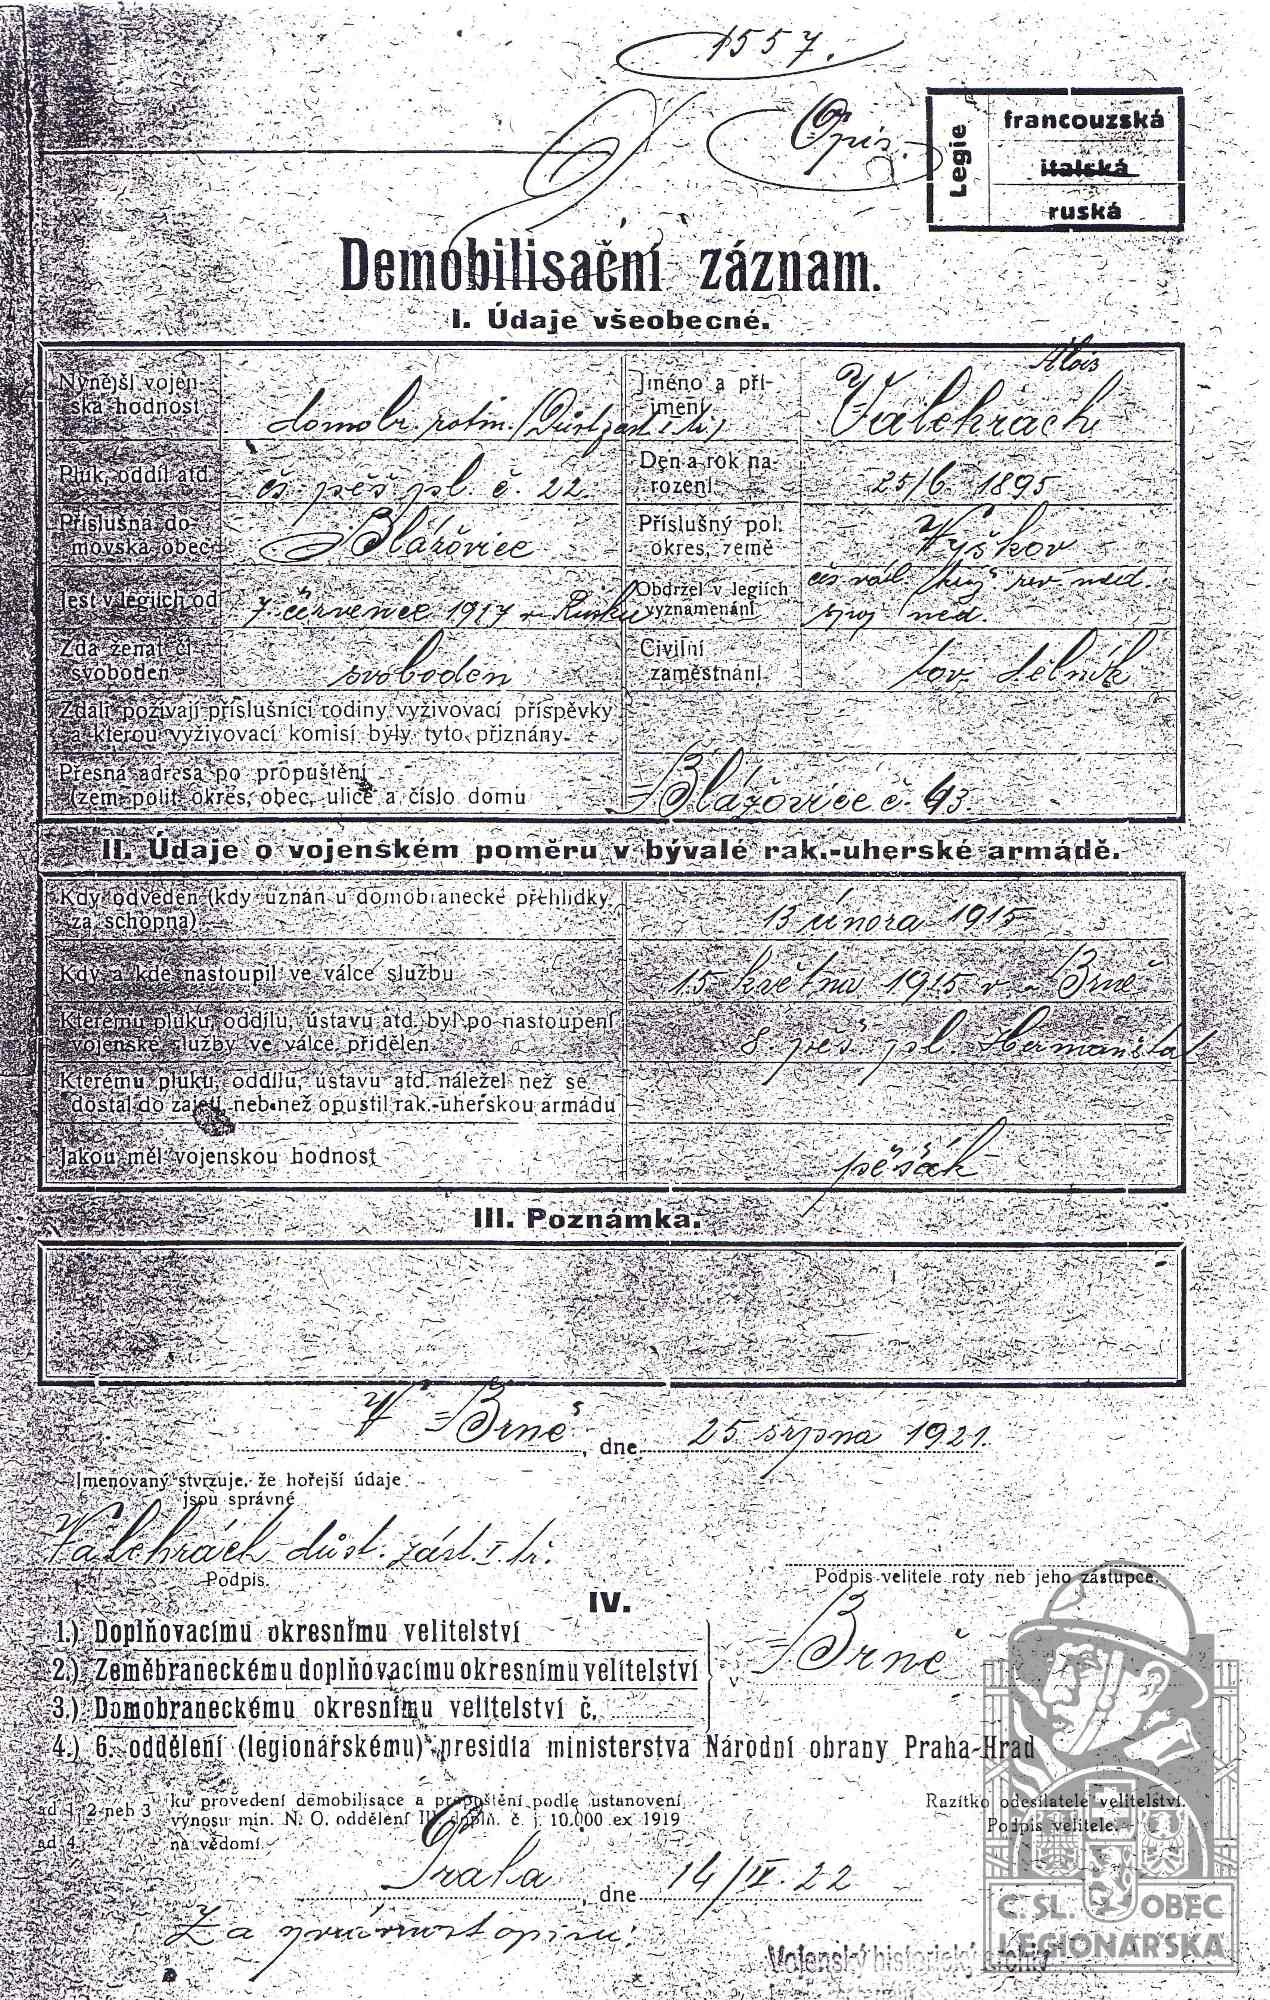 1557.
Opis.
Legie
francouzská
italská
ruská
Demobilisační záznam.
I. Údaje všeobecné.
Nynější vojen-
ská hodnost
domobr. rotm. (Důst. zást. I. tř.)
Jméno a pří-
jmení
Alois
Valehrach
Pluk, oddíl atd.
čs. pěš. pl. č. 22.
Den a rok na-
rození
25/6 1895
Příslušná do-
movská obec
Blážovice
Příslušný pol.
okres, země
Vyškov
Jest v legiích od
7. července 1917 v Rusku
Obdržel v legiích
vyznamenání
čs. vál. kříž rev. med.
spoj. med.
Zda ženat či
svoboden
svoboden
Civilní
zaměstnání
tov. dělník
Zdali požívají příslušníci rodiny vyživovací příspěvky
a kterou vyživovací komisí byly tyto přiznány
Přesná adresa po propuštění
(zem. polit. okres, obec, ulice a číslo domu
Blážovice č. 93.
II. Údaje o vojenském poměru v bývalé rak.-uherské armádě.
Kdy odveden (kdy uznán u domobranecké přehlídky
za schopna)
13 února 1915
Kdy a kde nastoupil ve válce službu
15 květnu 1915 v Brně
Kterému pluku, oddílu, ústavu atd. byl po nastoupení
vojenské služby ve válce přidělen
8. pěš. pl. Heřmanštat
Kterému pluku, oddílu, ústavu atd. náležel než se
dostal do zajetí, neb než opustil rak.-uherskou armádu
Jakou měl vojenskou hodnost
pěšák
III. Poznámka.
V Brně, dne 25 srpna 1921.
Jmenovaný stvrzuje, že hořejší údaje
jsou správné
Valehrách důst. zást. I. tř.
Podpis.
Podpis velitele roty neb jeho zástupce.
IV.
1.) Doplňovacímu okresnímu velitelství
2.) Zeměbraneckému doplňovacímu okresnímu velitelství
3.) Domobraneckému okresnímu velitelství č.
Brně
4.) 6. oddělení (legionářskému) presidia ministerstva Národní obrany Praha-Hrad
ad 1, 2 neb 3 ku provedení demobilisace a propuštění podle ustanovení
výnosu min. N. O. oddělení III. doplň. č. j. 10.000 ex 1919
ad 4. na vědomí.
Razítko odesilatele velitelství.
Podpis velitele.
Praha, dne 14/IV. 22
Za správnost opisu:
Vojenský historický archiv
Č. SL. OBEC
LEGIONÁŘSKÁ